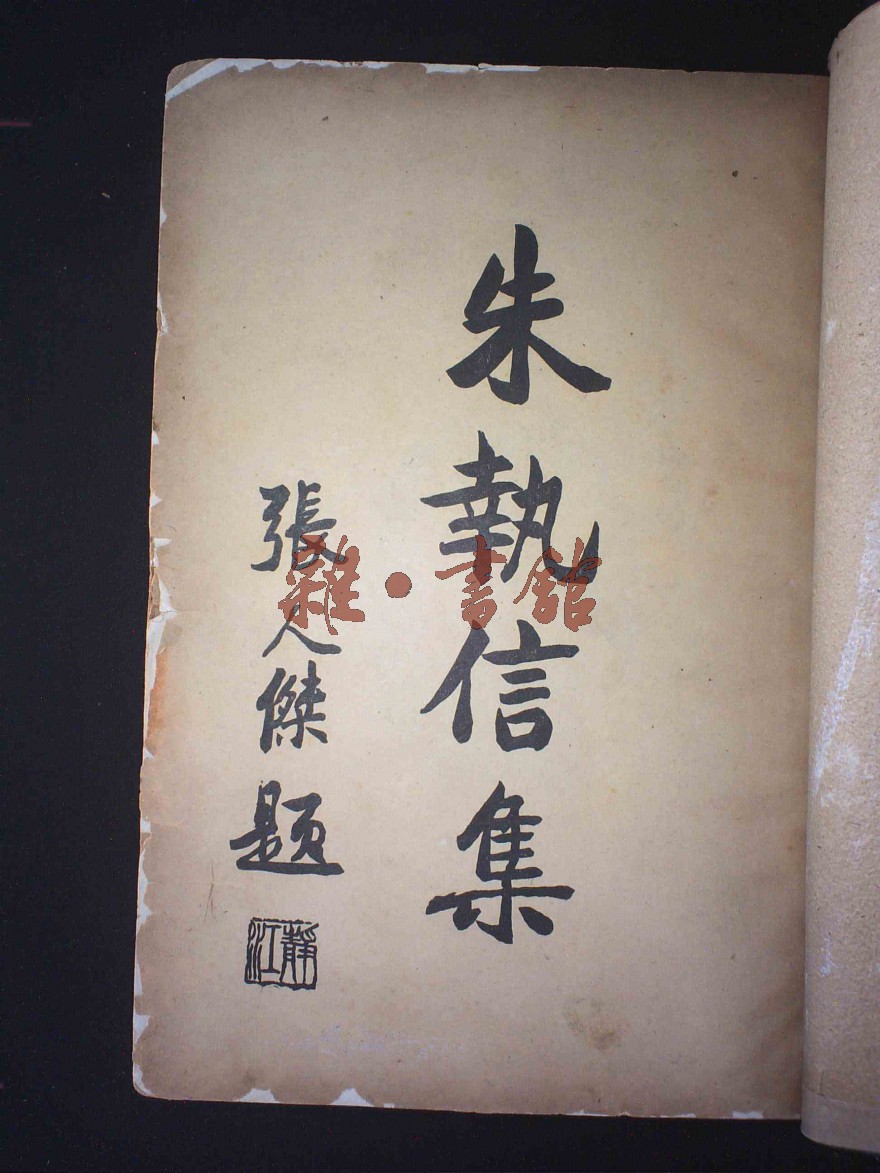 朱執信集
張人傑題
靜江
雜·書館